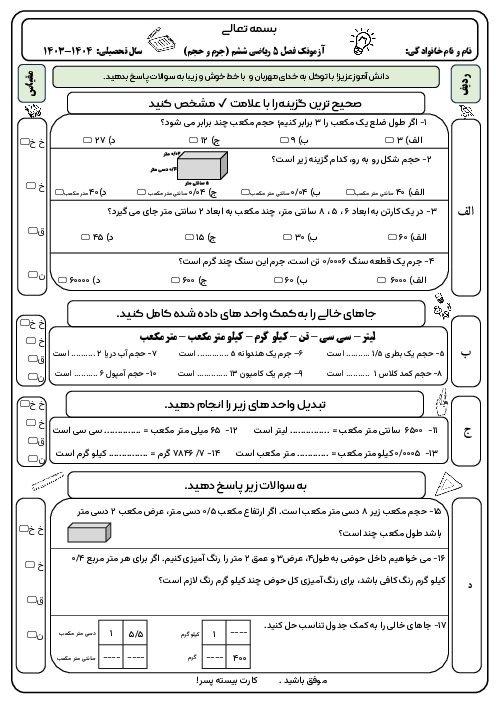 بسمه تعالی
نام و نام خانوادگی: آزمونک فصل ۵ ریاضی ششم (جرم و حجم) سال تحصیلی: ۱۴۰۴-۱۴۰۳
ردیف
دانش آموز عزیز! با توکل به خدای مهربان و با خط خوش و زیبا به سوالات پاسخ بدهید.
مقیاس
صحیح ترین گزینه را با علامت ✓ مشخص کنید
الف
۱- اگر طول ضلع یک مکعب را ۳ برابر کنیم؛ حجم مکعب چند برابر می شود؟
الف) ۳ ب) ۹ ج) ۱۲ د) ۲۷
۲- حجم شکل رو به رو، کدام گزینه زیر است؟
۰/۰۲ متر
۰/۴ دسی متر
۵ سانتی متر
الف) ۴۰ سانتی متر مکعب ب) ۰/۰۴ سانتی متر مکعب ج) ۰/۰۴ سانتی متر مکعب د) ۴۰ متر مکعب
۳- در یک کارتن به ابعاد ۶ ، ۵ ، ۸ سانتی متر، چند مکعب به ابعاد ۲ سانتی متر جای می گیرد؟
الف) ۶۰ ب) ۳۰ ج) ۱۵ د) ۴۵
۴- جرم یک قطعه سنگ ۰/۰۰۰۶ تن است، جرم این سنگ چند گرم است؟
الف) ۶۰۰۰ ب) ۶۰ ج) ۶۰۰ د) ۶۰۰۰۰
خ خ
خ
ق
ن
جاهای خالی را به کمک واحد های داده شده کامل کنید.
ب
لیتر – سی سی – تن – کیلو گرم – کیلو متر مکعب – متر مکعب
۵- حجم یک بطری ۱/۵ .......... است ۶- جرم یک هندوانه ۵ ............. است ۷- حجم آب دریا ۲ .......... است
۸- حجم کمد کلاس ۱ .......... است ۹- جرم یک کامیون ۱۳ ............. است ۱۰- حجم آمپول ۶ .......... است
خ خ
خ
ق
ن
تبدیل واحد های زیر را انجام دهید.
ج
۱۱- ۶۵۰۰ سانتی متر مکعب = ............... لیتر است ۱۲- ۶۵ میلی متر مکعب = .............. سی سی است
۱۳- ۰/۰۰۰۵ کیلو متر مکعب = ............ متر مکعب است ۱۴- ۷/ ۷۸۴۶ گرم = .............. کیلو گرم است
خ خ
خ
ق
ن
به سوالات زیر پاسخ دهید.
د
۱۵- حجم مکعب زیر ۸ دسی متر مکعب است. اگر ارتفاع مکعب ۰/۵ دسی متر، عرض مکعب ۲ دسی متر
باشد طول مکعب چند است؟
۱۶- می خواهیم داخل حوضی به طول ۴، عرض ۳ و عمق ۲ متر را رنگ آمیزی کنیم. اگر برای هر متر مربع ۰/۴
کیلو گرم رنگ کافی باشد، برای رنگ آمیزی کل حوض چند کیلو گرم رنگ لازم است؟
۱۷- جاهای خالی را به کمک جدول تناسب حل کنید.
کیلو گرم ۱ ----
گرم ---- ۴۰۰
دسی متر مکعب ۱ ۵/۵
سانتی متر مکعب ---- ----
خ خ
خ
ق
ن
موفق باشید . کارت بیسته پسر!